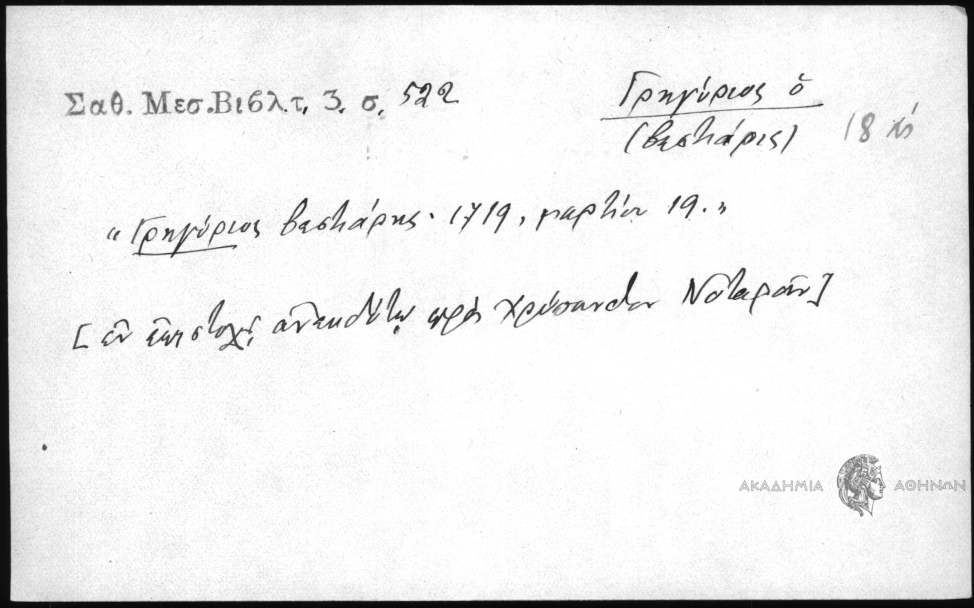 Σαθ. Μεσ. Βιβλ τ. 3. σ. 522
Γρηγόριος ὁ
(βεστιάρις)
18
"Γρηγόριος βεστιάρης. 1719, μαρτίου 19."
[ἐν ἐπιστολῇ ἀνεκδότῳ πρὸς Χρύσανθον Νοταρᾶν]
ΑΚΑΔΗΜΙΑ ΑΘΗΝΩΝ